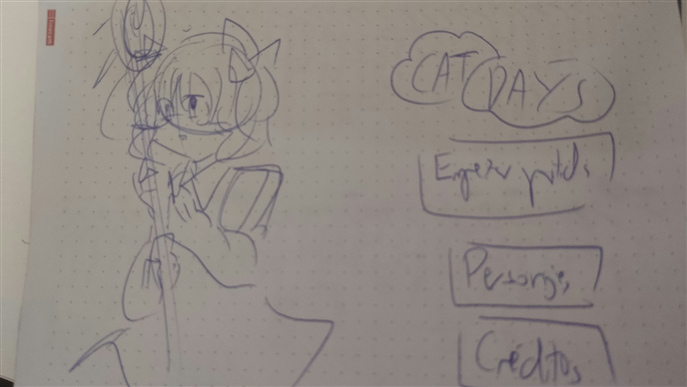 CAT DAYS
Empezar partida
Personajes
Créditos